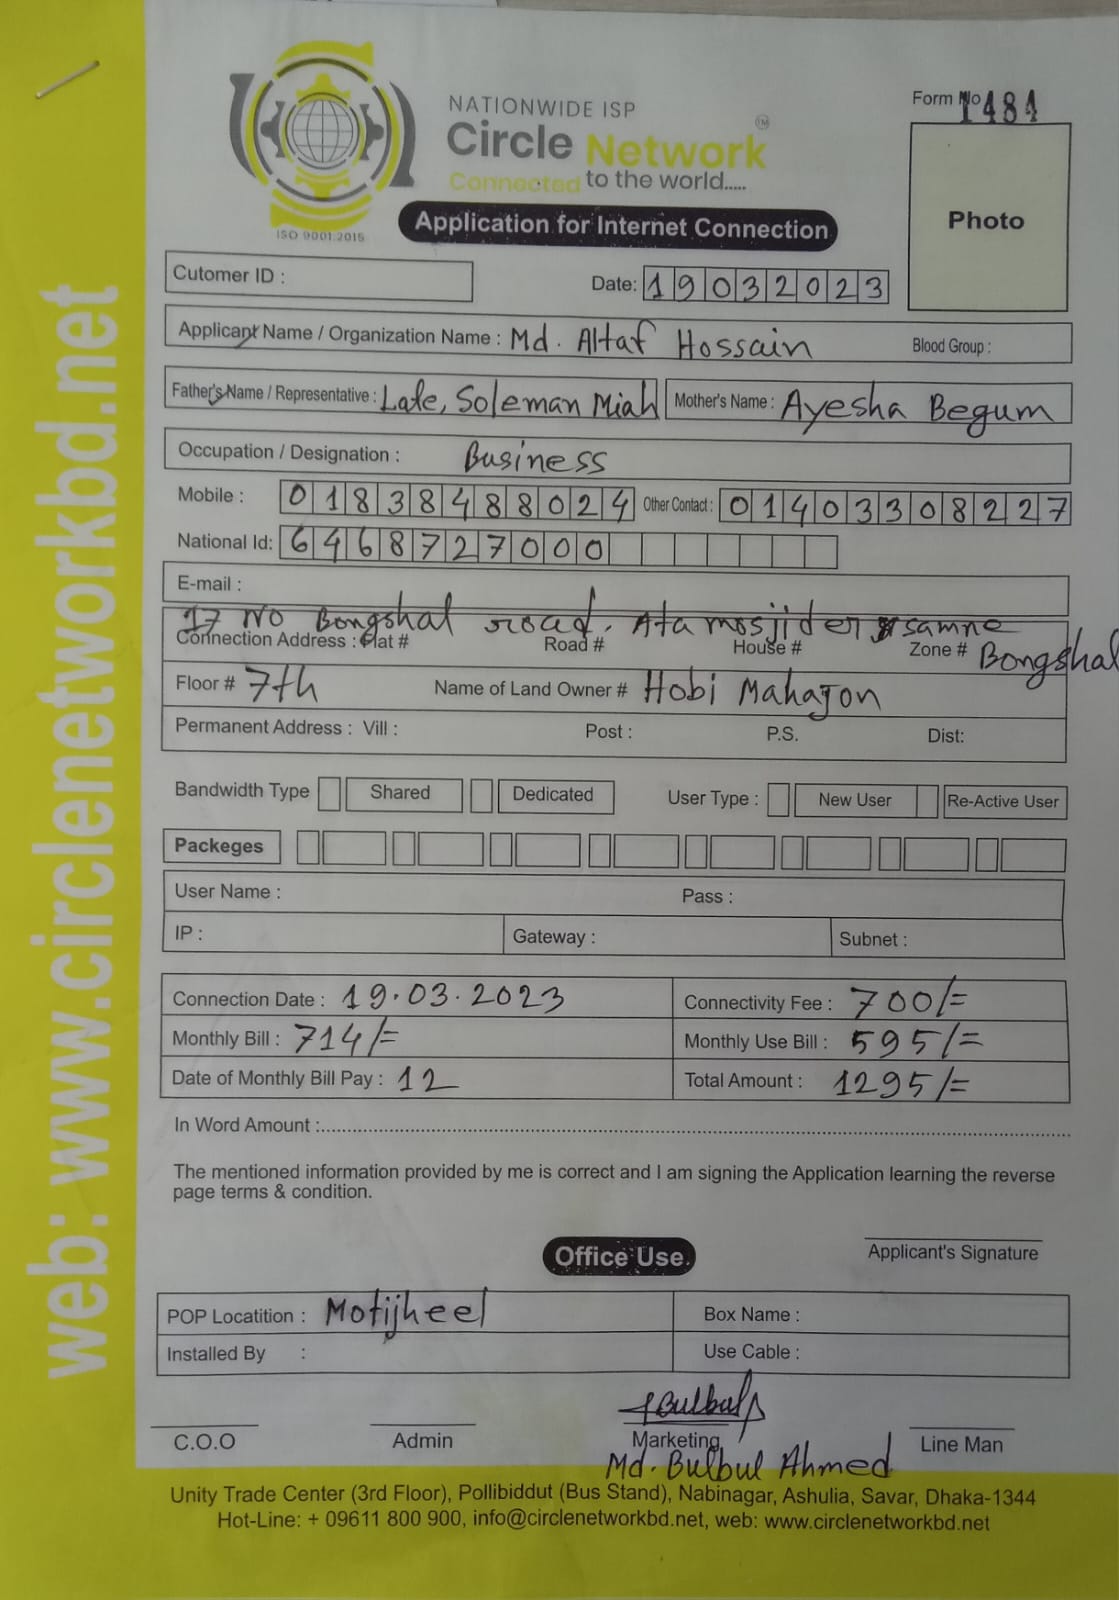 NATIONWIDE ISP
Circle Network TM
Connected to the world.....
ISO 9001:2015
Application for Internet Connection
Form No 1484
Photo
Cutomer ID :
Date: 19032023
Applicant Name / Organization Name : Md. Altaf Hossain Blood Group :
Father's Name / Representative : Late, Soleman Miah Mother's Name : Ayesha Begum
Occupation / Designation : Business
Mobile : 01838488024 Other Contact : 01403308227
National Id: 6468727000
E-mail :
17 No Bongshal road. Ata mosjider samne
Connection Address : Flat # Road # House # Zone # Bongshal
Floor # 7th Name of Land Owner # Hobi Mahajon
Permanent Address : Vill : Post : P.S. Dist:
Bandwidth Type Shared Dedicated User Type : New User Re-Active User
Packeges
User Name : Pass :
IP : Gateway : Subnet :
Connection Date : 19.03.2023 Connectivity Fee : 700/=
Monthly Bill : 714/= Monthly Use Bill : 595/=
Date of Monthly Bill Pay : 12 Total Amount : 1295/=
In Word Amount :
The mentioned information provided by me is correct and I am signing the Application learning the reverse
page terms & condition.
Applicant's Signature
Office Use.
POP Locatition : Motijheel Box Name :
Installed By : Use Cable :
Bulbul
C.O.O Admin Marketing Line Man
Md. Bulbul Ahmed
Unity Trade Center (3rd Floor), Pollibiddut (Bus Stand), Nabinagar, Ashulia, Savar, Dhaka-1344
Hot-Line: + 09611 800 900, info@circlenetworkbd.net, web: www.circlenetworkbd.net
web: www.circlenetworkbd.net